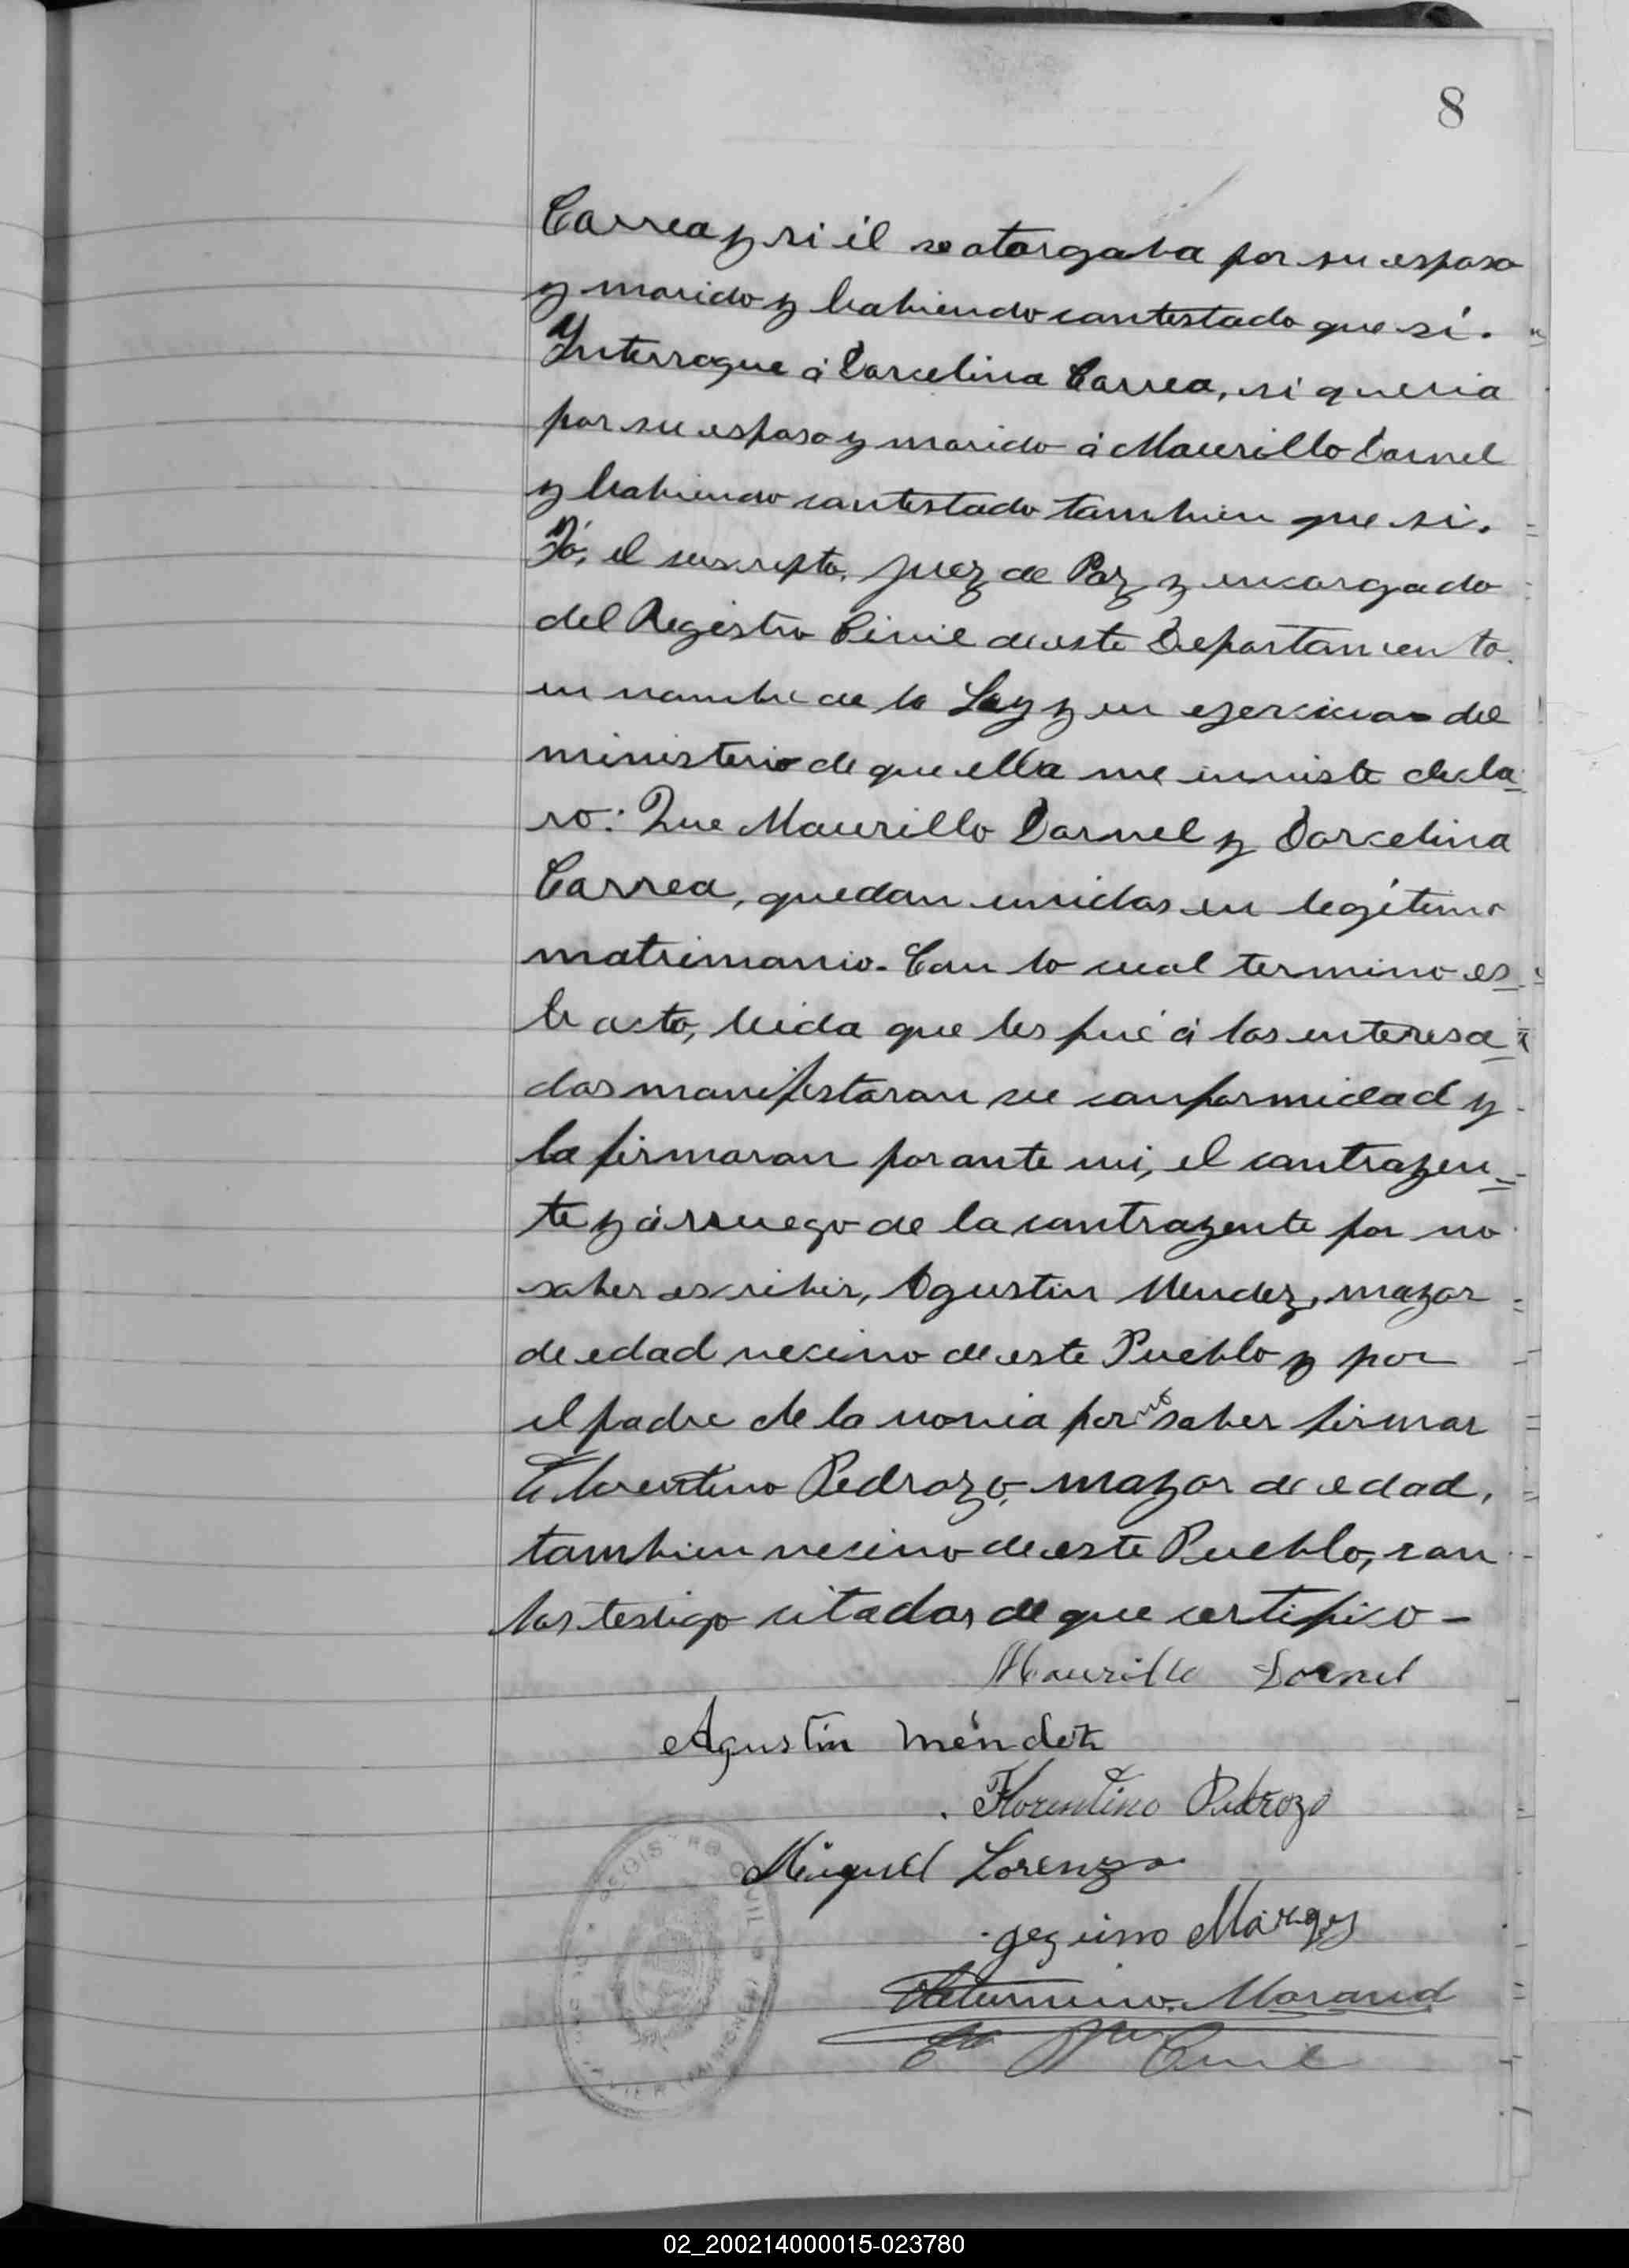 8
Correa y si él se otorgaba por su esposo
y marido y habiendo contestado que sí.
Interrogue á Dorcelina Correa, si queria
por su esposo y marido á Maurillo Dornel
y habiendo contestado tambien que si.
Yó, el suscripto, Juez de Paz y encargado
del Registro Civil de este Departamento
en nombre de la Ley y en ejercicio del
ministerio de que ella me inviste decla
ro: Que Maurillo Dornel y Dorcelina
Correa, quedan unidos en legítimo
matrimonio. Con lo cual termino es
te acto, leida que les fué á los interesa
dos manifestaron su conformidad y
la firmaron por ante mi, el contrayen
te y á rruego de la contrayente por no
saber escribir, Agustin Mendez, mayor
de edad vecino de este Pueblo y por
el padre de la novia por no saber firmar
Florentino Pedrozo, mayor de edad,
tambien vecino de este Pueblo, con
los testigo citados de que certifico -
Maurillo Dornel
Agustin Méndez
Florentino Pedrozo
Miguel Lorenzo
Marqes
Saturnino
Civil
REGISTRO CIVIL
02_200214000015-023780